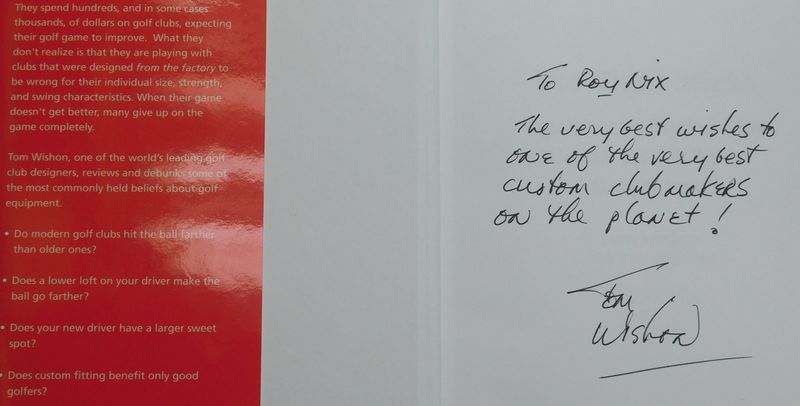 They spend hundreds, and in some cases
thousands, of dollars on golf clubs, expecting
their golf game to improve. What they
don't realize is that they are playing with
clubs that were designed from the factory to
be wrong for their individual size, strength,
and swing characteristics. When their game
doesn't get better, many give up on the
game completely.
Tom Wishon, one of the world's leading golf
club designers, reviews and debunks some of
the most commonly held beliefs about golf
equipment.
• Do modern golf clubs hit the ball farther
than older ones?
• Does a lower loft on your driver make the
ball go farther?
• Does your new driver have a larger sweet
spot?
• Does custom fitting benefit only good
golfers?
To Roy Nix
The very best wishes to
one of the very best
custom clubmakers
on the planet!
Tom
Wishon